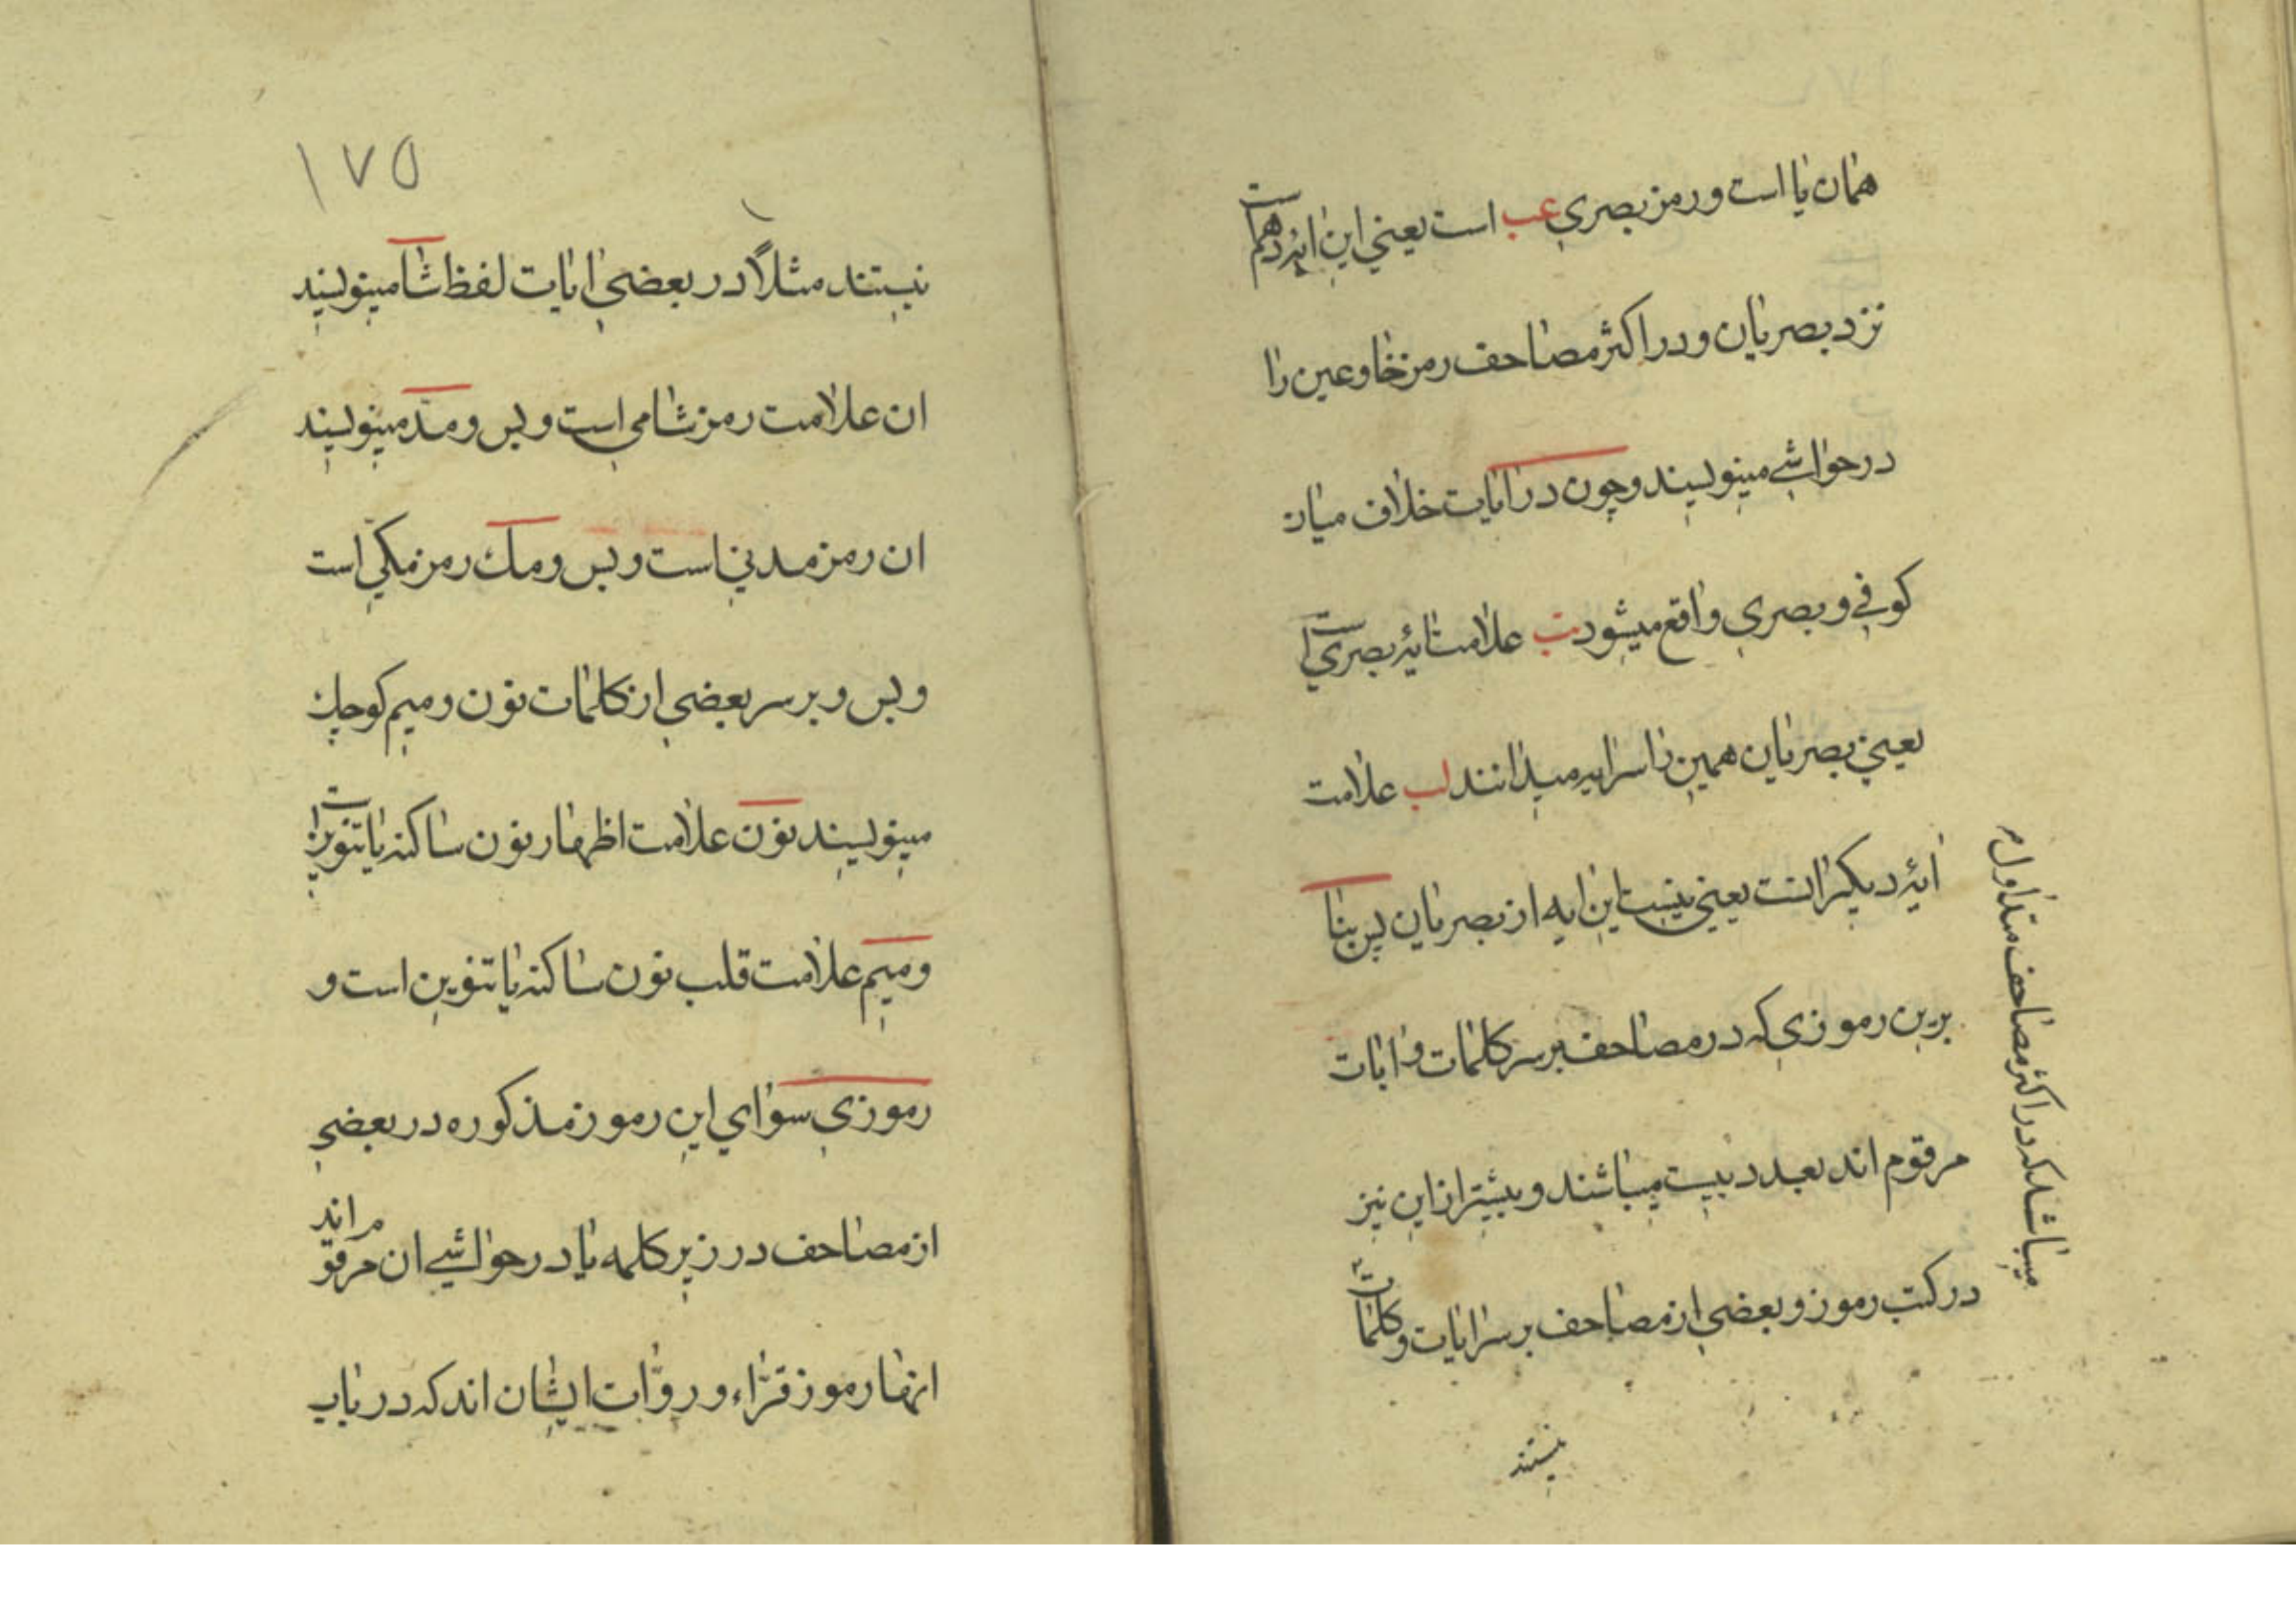 همان یا است و رمز بصری عب است یعنی این ایۀ دهم است
نزد بصریان و در اکثر مصاحف رمز خا و عین را
در حواشی مینویسند و چون در ایات خلاف میان
کوفی و بصری واقع میشود تب علامت ایۀ بصری است
یعنی بصریان همین را سرایه میدانند لب علامت
ایۀ دیگر انست یعنی نیست این ایه از بصریان پس بنا
برین رموزی که در مصاحف بر سر کلمات و ایات
مرقوم اند بعدد بیست میباشند و بیشتر از این نیز
در کتب رموز و بعضی از مصاحف بر سر ایات و کلمات
نیستند
میباشد که در اکثر مصاحف متداول
۱۷۵
نیستند مثلاً در بعضی ایات لفظ شا مینویسند
ان علامت رمز شامی است و بس و مد مینویسند
ان رمز مدنی است و بس و مك رمز مکّی است
و بس و بر سر بعضی از کلمات نون و میم کوچك
مینویسند نون علامت اظهار نون ساکنه یا تنوین است
و میم علامت قلب نون ساکنه یا تنوین است و
رموزی سوای این رموز مذکوره در بعضی
از مصاحف در زیر کلمه یا در حواشی ان مرقوم اند
انها رموز قرّاء و روّات ایشان اند که در باب